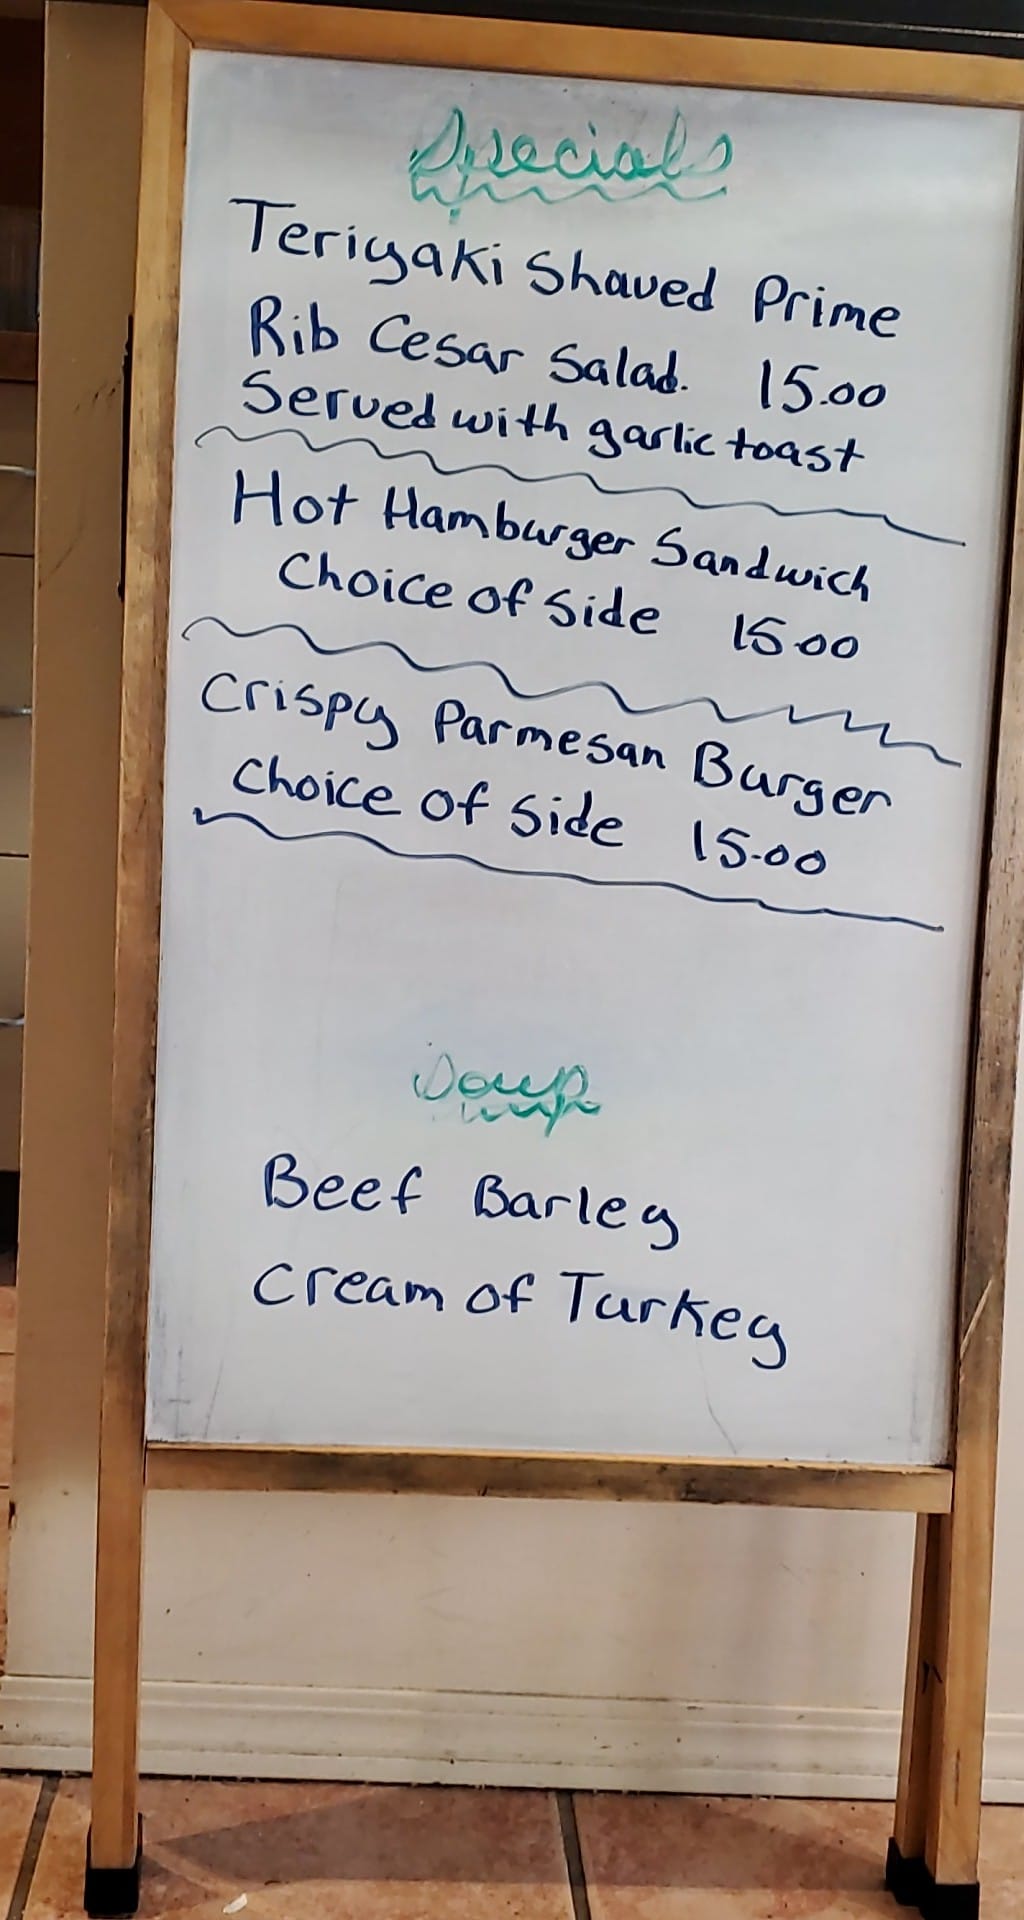 Specials
Teriyaki Shaved Prime
Rib Cesar Salad. 15.00
Served with garlic toast
Hot Hamburger Sandwich
Choice of Side 15.00
Crispy Parmesan Burger
Choice of Side 15.00
Soup
Beef Barley
Cream of Turkey